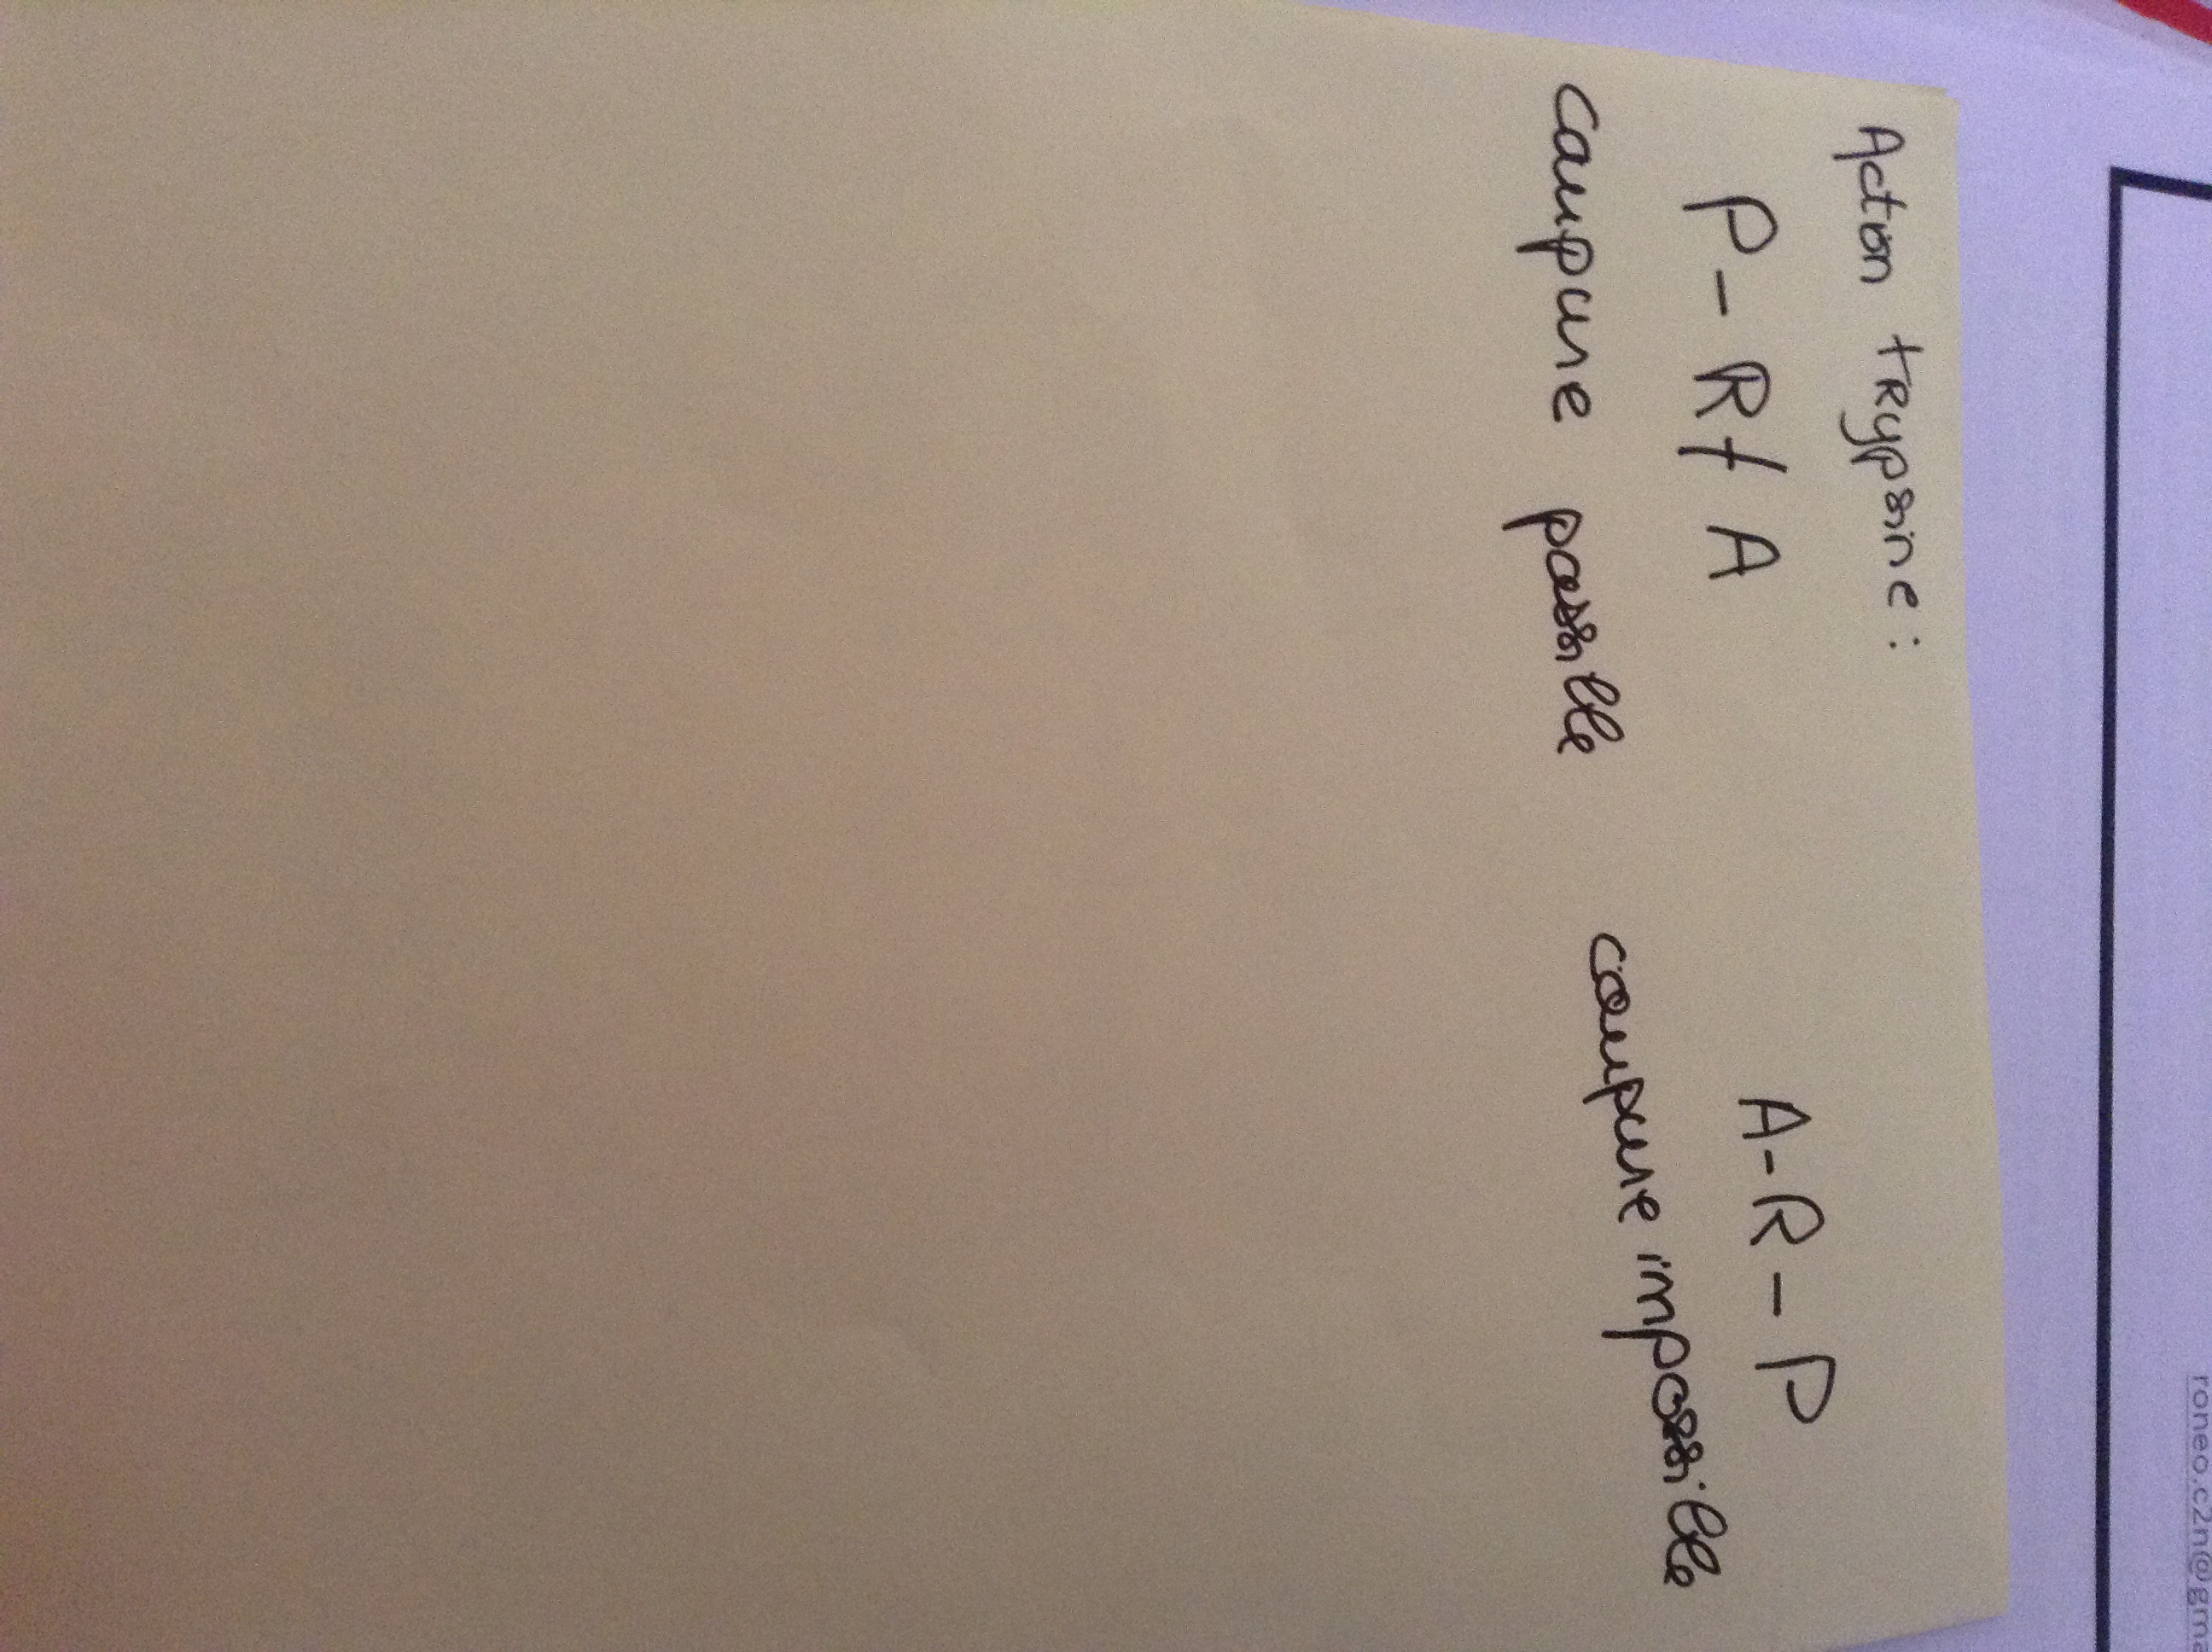 Action tRypsine :
P - R / A
A - R - P
coupure possible
coupure impossible
roneo.c2n@gma